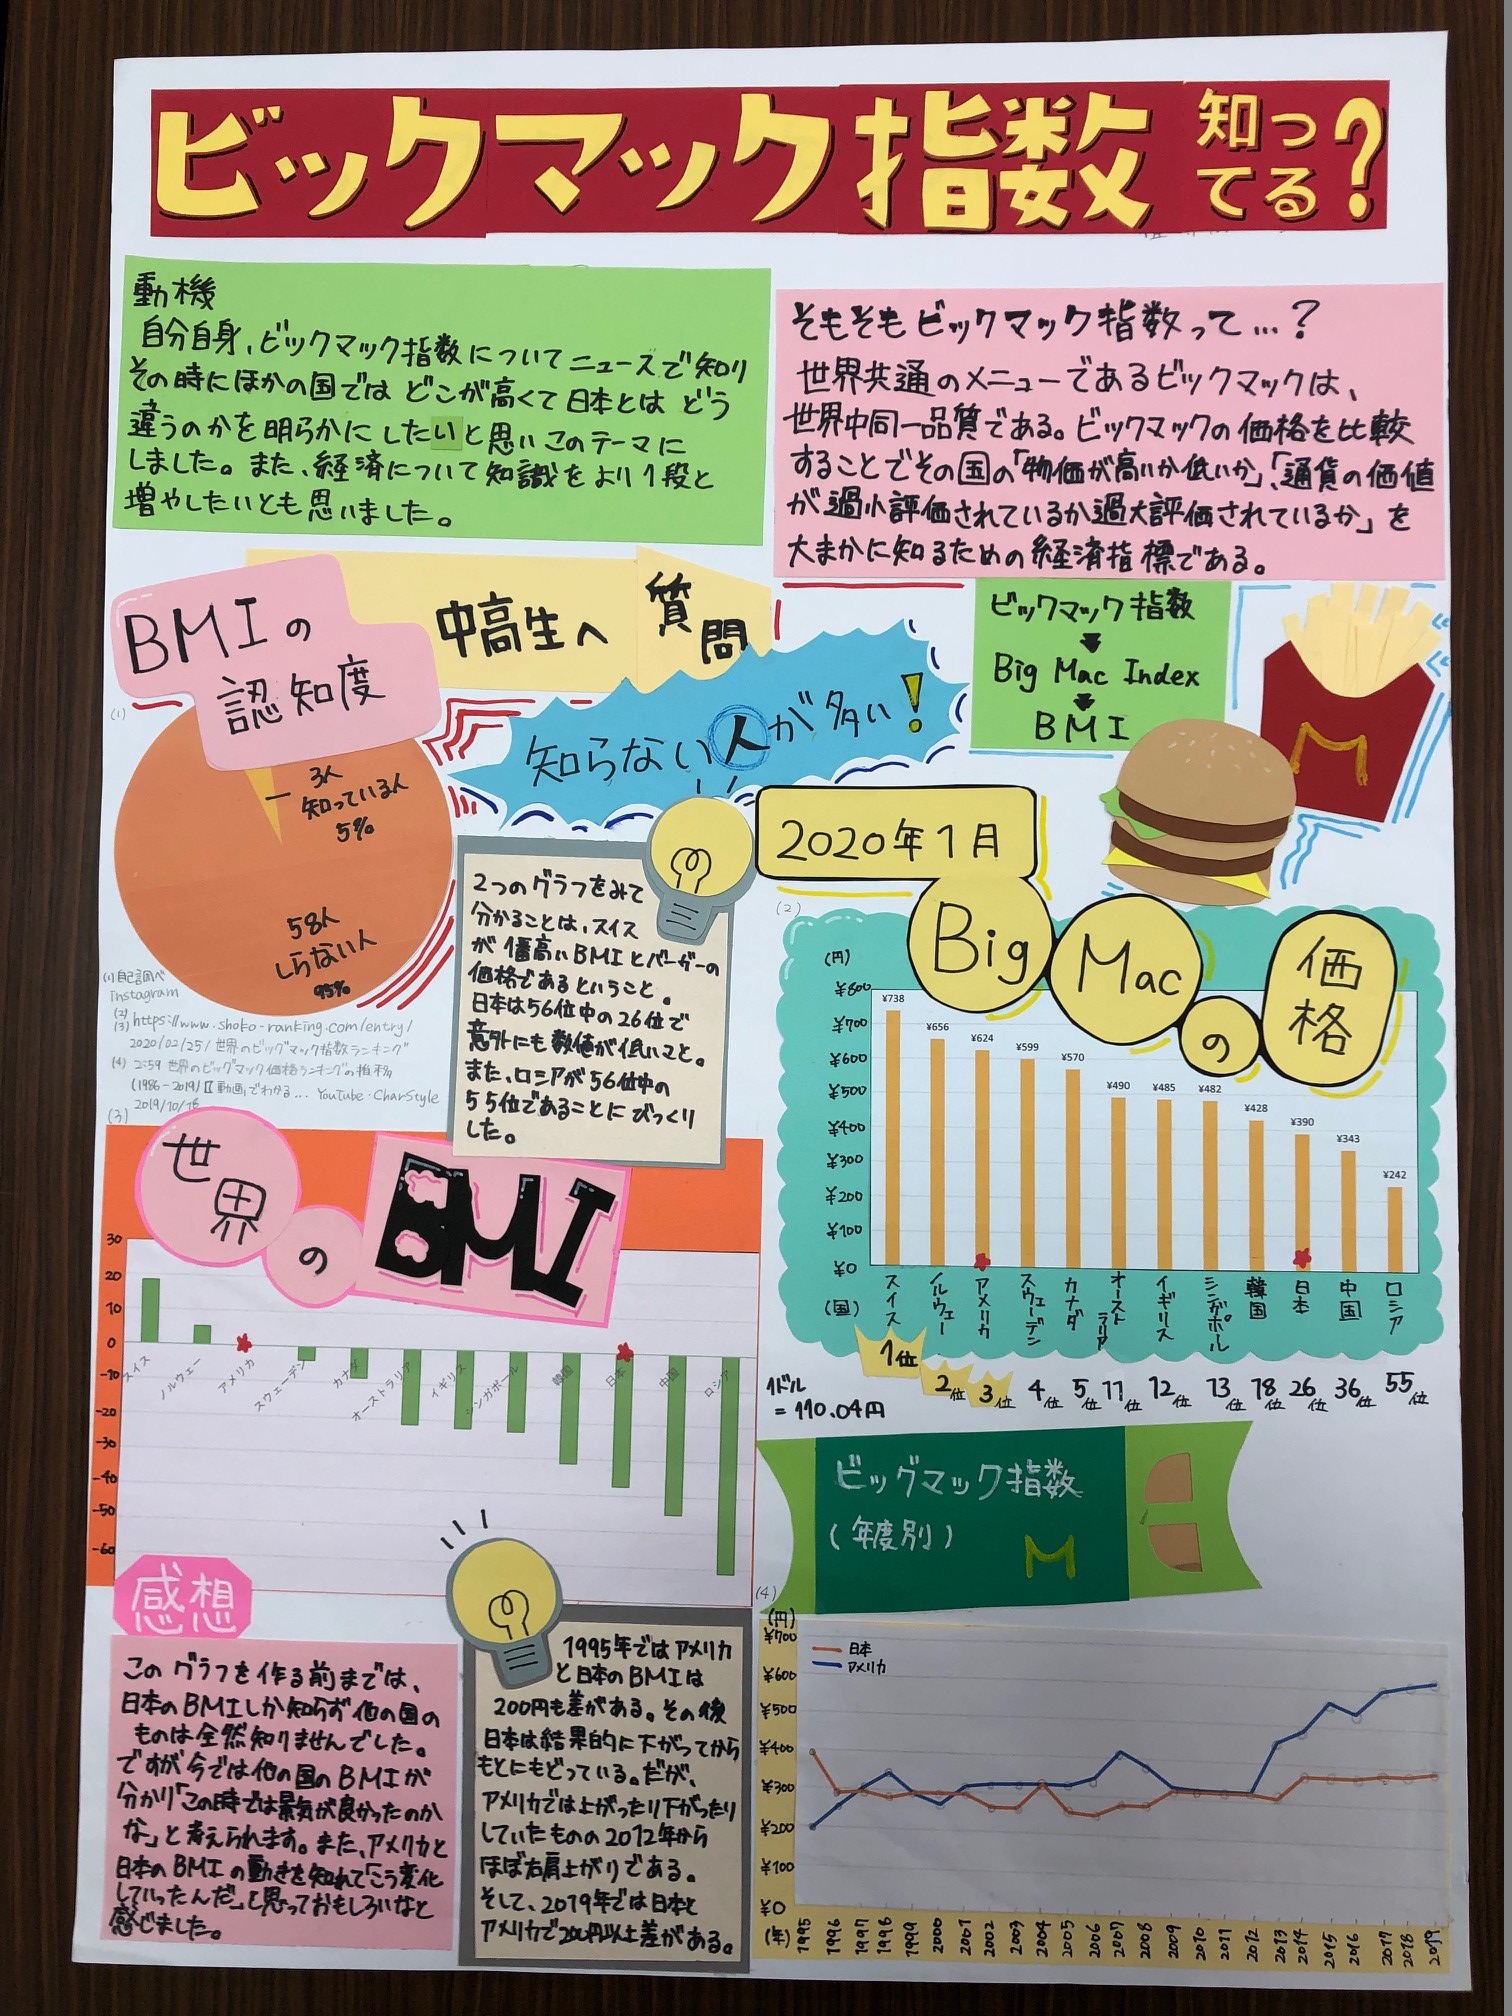 ビックマック指数 知ってる?
動機
自分自身、ビックマック指数についてニュースで知り
その時にほかの国では どこが高くて日本とは どう
違うのかを明らかに したいと思い このテーマに
しました。また、経済について知識をより1段と
増やしたいとも思いました。
そもそもビックマック指数って…?
世界共通のメニューであるビックマックは、
世界中同一品質である。ビックマックの価格を比較
することでその国の「物価が高いか低いか」、「通貨の価値
が過小評価されているか過大評価されているか」を
大まかに知るための経済指標である。
BMIの
認知度
中高生へ 質問
知らない人が多い!
ビックマック指数
Big Mac Index
BMI
M
(1)
3人
知っている人
5%
58人
しらない人
95%
(1)自己調べ
Instagram
(2)
(3) https://www.shoko-ranking.com/entry/
2020/02/25/世界のビッグマック指数ランキング
(4) 2:59 世界のビッグマック価格ランキングの推移
(1986-2019)【動画でわかる... YouTube・CharStyle
2019/10/18
2つのグラフをみて
分かることは、スイス
が1番高いBMIとバーガーの
価格であるということ。
日本は56位中の26位で
意外にも数値が低いこと。
また、ロシアが56位中の
55位であることにびっくり
した。
2020年1月
Big Mac の 価格
(2)
(円)
¥800
¥700
¥600
¥500
¥400
¥300
¥200
¥100
¥0
¥738
¥656
¥624
¥599
¥570
¥490
¥485
¥482
¥428
¥390
¥343
¥242
(国)
スイス
ノルウェー
アメリカ
スウェーデン
カナダ
オーストラリア
イギリス
シンガポール
韓国
日本
中国
ロシア
1位 2位 3位 4位 5位 11位 12位 13位 18位 26位 36位 55位
1ドル
=110.04円
(3)
世界の BMI
30
20
10
0
-10
-20
-30
-40
-50
-60
スイス
ノルウェー
アメリカ
スウェーデン
カナダ
オーストラリア
イギリス
シンガポール
韓国
日本
中国
ロシア
感想
このグラフを作る前までは、
日本のBMIしか知らず他の国の
ものは全然知りませんでした。
ですが今では他の国のBMIが
分かり「この時では景気が良かったのか
な」と考えられます。また、アメリカと
日本のBMIの動きを知れて「こう変化
していったんだ」と思っておもしろいなと
感じました。
1995年ではアメリカ
と日本のBMIは
200円も差がある。その後
日本は結果的に下がってから
もとにもどっている。だが、
アメリカでは上がったり下がったり
していたものの2012年から
ほぼ右肩上がりである。
そして、2019年では日本と
アメリカで200円以上差がある。
ビッグマック指数
(年度別)
M
(4)
(円)
¥700
¥600
¥500
¥400
¥300
¥200
¥100
¥0
日本
アメリカ
(年) 1995 1996 1997 1998 1999 2000 2001 2002 2003 2004 2005 2006 2007 2008 2009 2010 2011 2012 2013 2014 2015 2016 2017 2018 2019